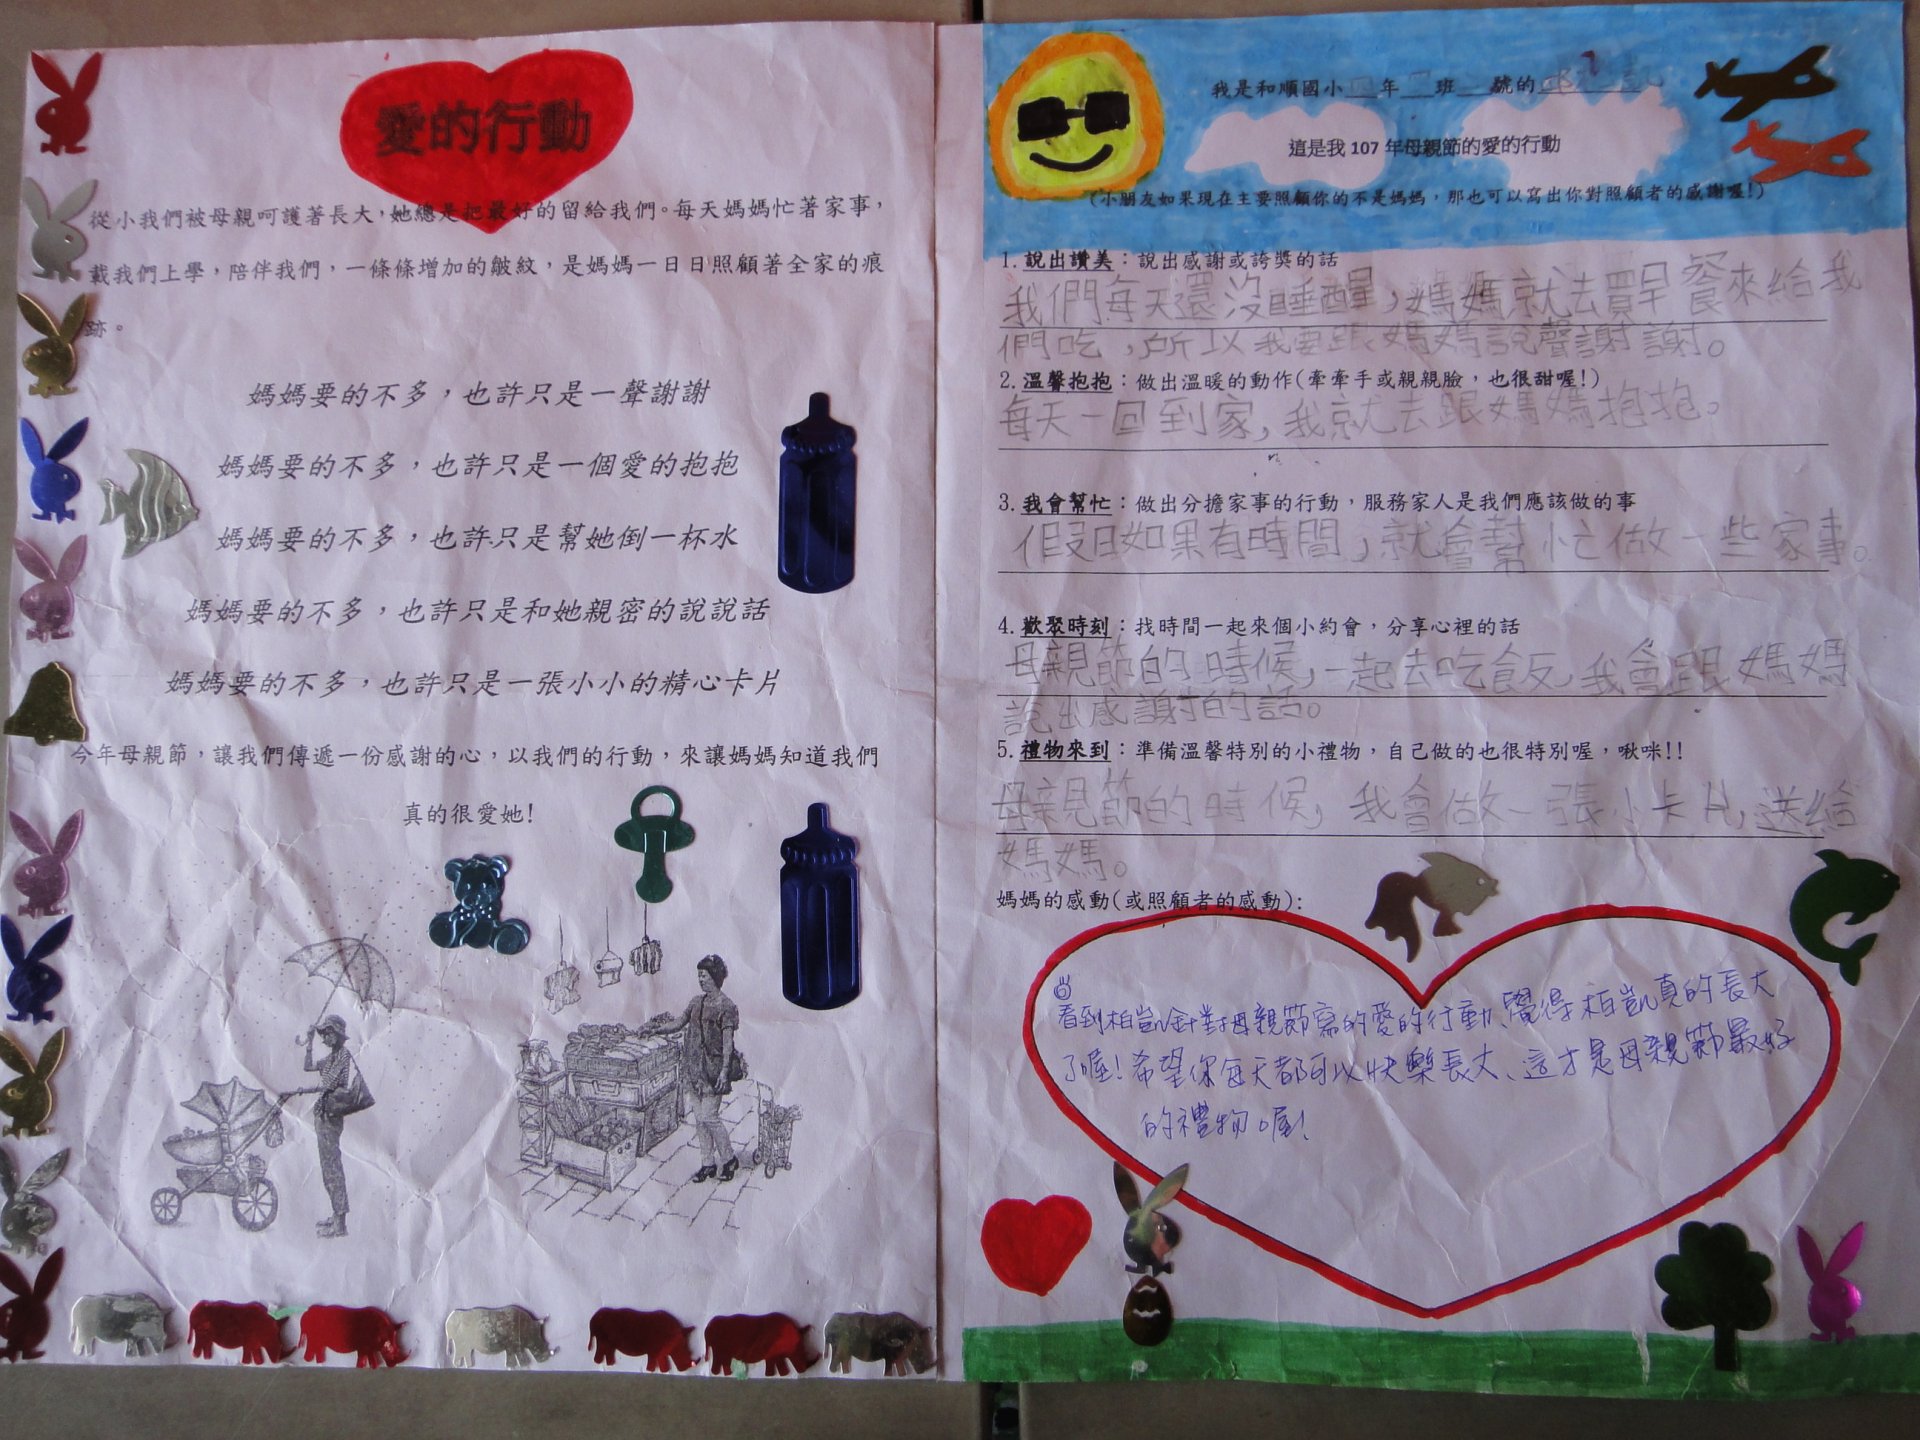 愛的行動
從小我們被母親呵護著長大,她總是把最好的留給我們。每天媽媽忙著家事,
載我們上學,陪伴我們,一條條增加的皺紋,是媽媽一日日照顧著全家的痕
跡。
媽媽要的不多,也許只是一聲謝謝
媽媽要的不多,也許只是一個愛的抱抱
媽媽要的不多,也許只是幫她倒一杯水
媽媽要的不多,也許只是和她親密的說說話
媽媽要的不多,也許只是一張小小的精心卡片
今年母親節,讓我們傳遞一份感謝的心,以我們的行動,來讓媽媽知道我們
真的很愛她!
我是和順國小四年 班 號的
這是我 107 年母親節的愛的行動
(小朋友如果現在主要照顧你的不是媽媽,那也可以寫出你對照顧者的感謝喔!)
1.說出讚美:說出感謝或誇獎的話
我們每天還沒睡醒,媽媽就去買早餐來給我
們吃,所以我要跟媽媽說聲謝謝。
2.溫馨抱抱:做出溫暖的動作(牽牽手或親親臉,也很甜喔!)
每天一回到家,我就去跟媽媽抱抱。
3.我會幫忙:做出分擔家事的行動,服務家人是我們應該做的事
假日如果有時間,就會幫忙做一些家事。
4.歡聚時刻:找時間一起來個小約會,分享心裡的話
母親節的時候,一起去吃飯,我會跟媽媽
說出感謝的話。
5.禮物來到:準備溫馨特別的小禮物,自己做的也很特別喔,啾咪!!
母親節的時候,我會做一張小卡片,送給
媽媽。
媽媽的感動(或照顧者的感動):
看到柏凱針對母親節寫的愛的行動、覺得柏凱真的長大
了喔!希望你每天都可以快樂長大、這才是母親節最好
的禮物喔!